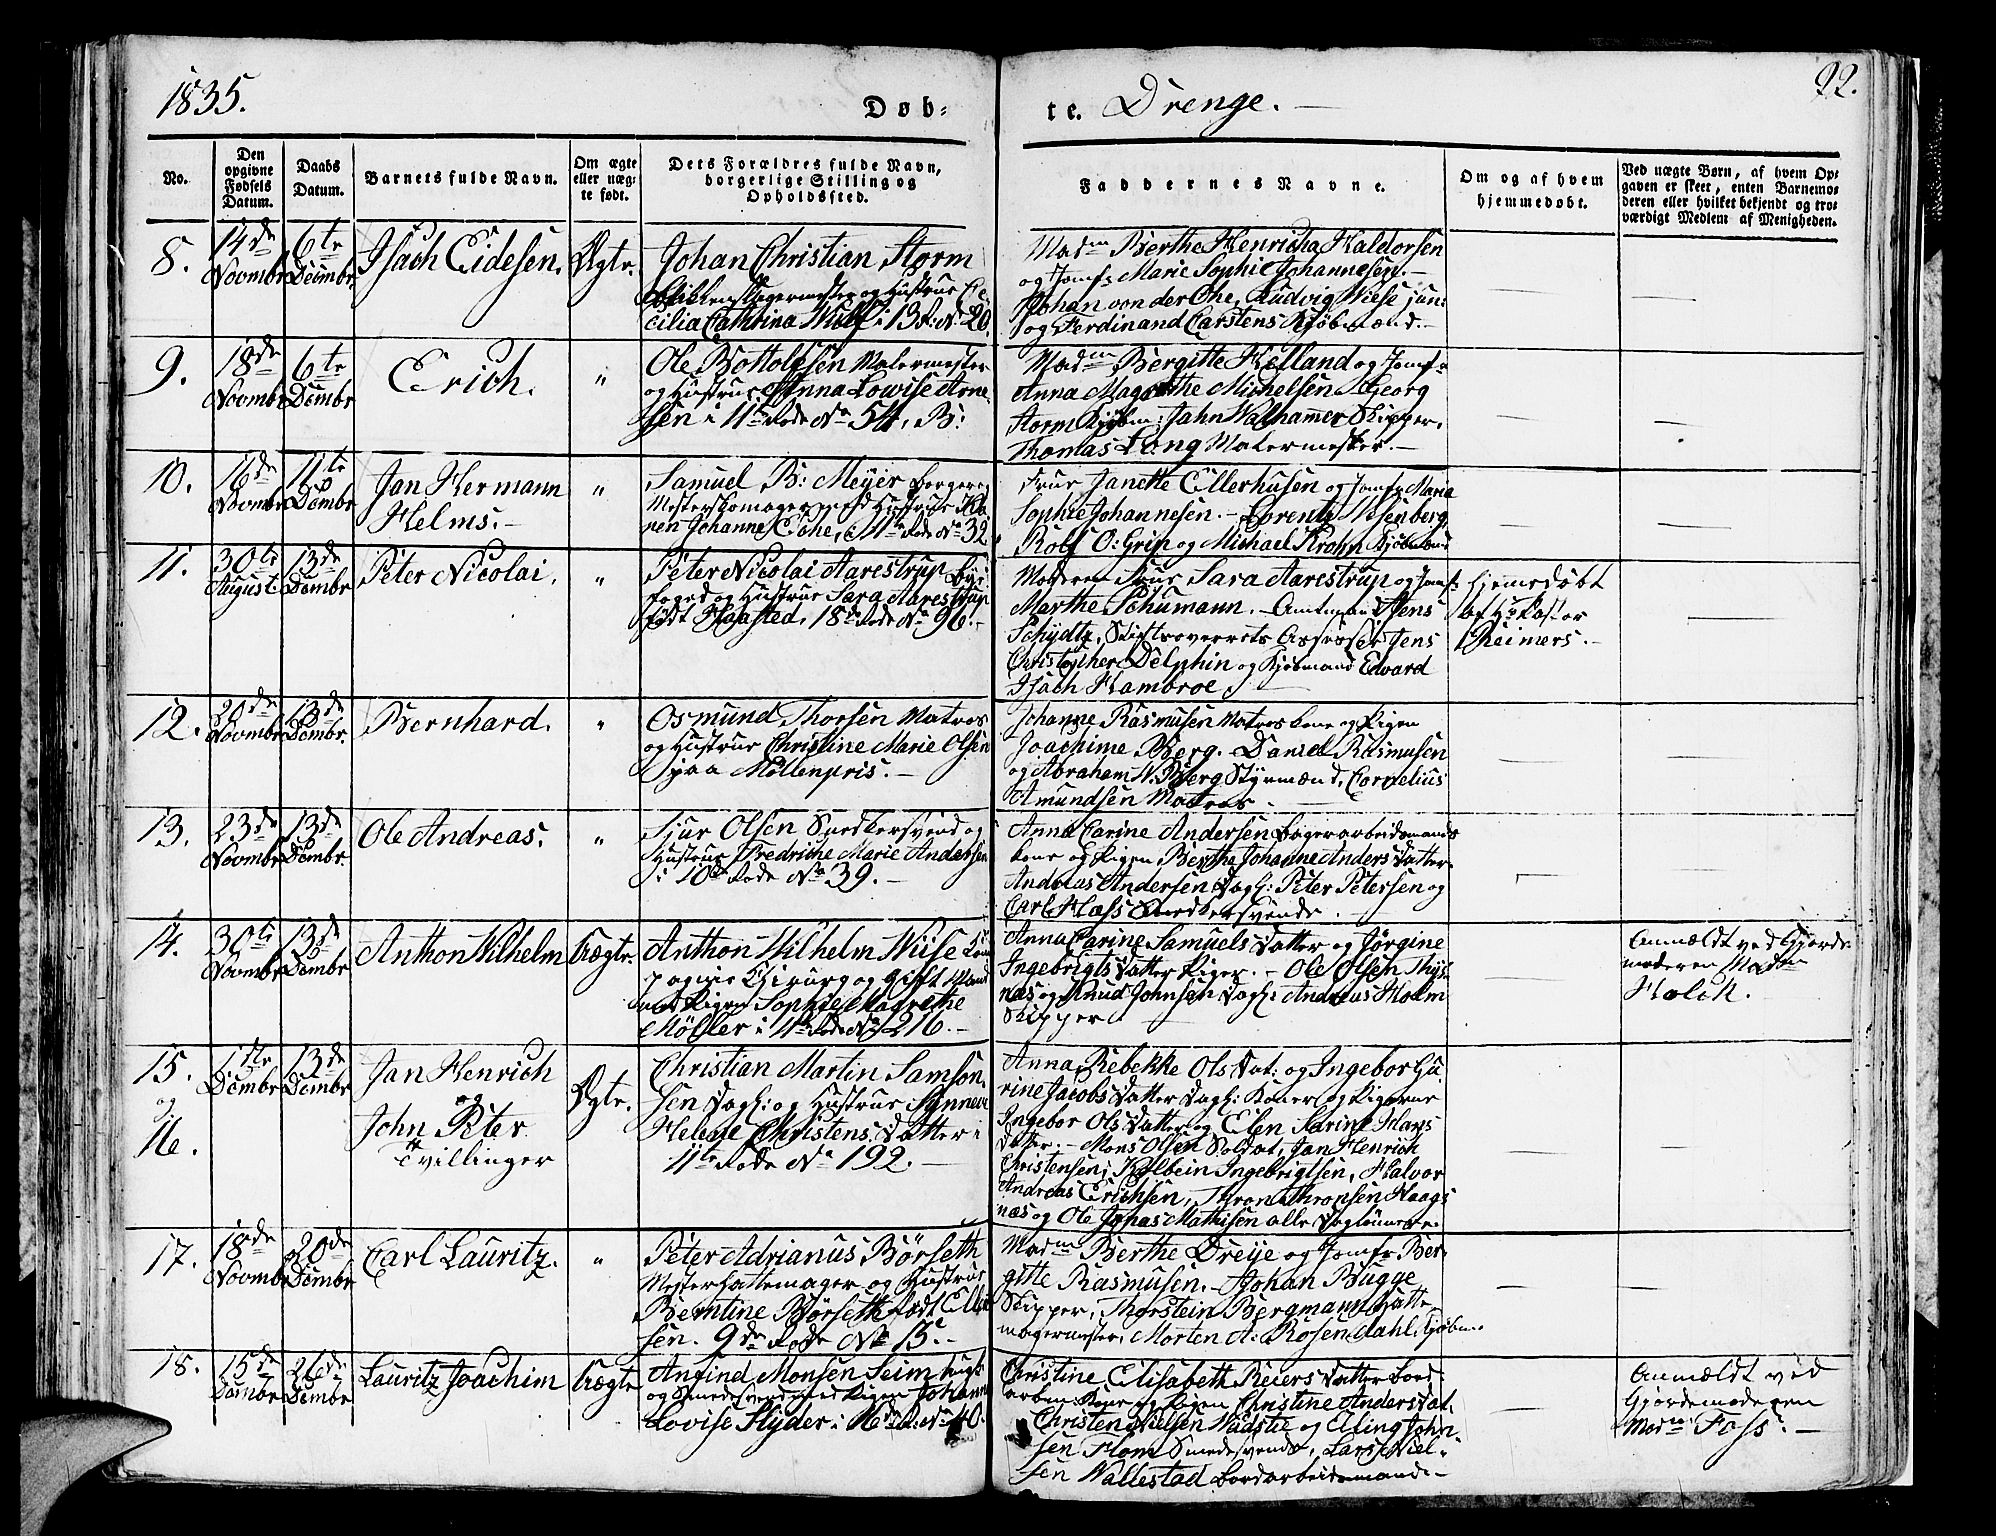 1835.
Døb-
te. Drenge.
22.
No.
Den opgivne Fødsels Datum.
Daabs Datum.
Barnets fulde Navn.
Om ægte eller uæg-
te født.
Dets Forældres fulde Navn,
borgerlige Stilling og
Opholdssted.
Faddernes Navne.
Om og af hvem
hjemmedøbt.
Ved uægte Børn, af hvem Op-
gaven er skeet, enten Barnemo-
deren eller hvilket bekjendt og tro-
værdigt Medlem af Menigheden.
8. 14de Novmbr 6te Decmbr Isach Eidesen. Ægte.
Johan Christian Storm
Blikkenslagermester og Hustrue Ce-
cilia Cathrina Wolf i 13 R: No 20.
Madm Berthe Henricha Haldorsen
og Jomfr Marie Sophie Johannesen.
Johan von der Ohe, Ludvig Wiese jun:
og Ferdinand Carstens Kjøbmænd.
9. 18de Novmbr 6te Dcmbr Erich. "
Ole Bottolfsen Malermester
og Hustrue Anna Lovise Arne-
sen i 11te Rode No 54, B:
Madm Bergitte Helland og Jomfr
Anna Magrethe Michelsen. Georg
Storm Kjøbm: Jahn Walhammer Skipper,
Thomas Long Malermester.
10. 16de Novmbr 11te Dcmbr Jan Hermann
Helms. "
Samuel B: Meyer borger
Mester Skomager med Hustrue Ka-
ren Johanne Eihe, i 11te Rode No 32
Frue Janette Ellerhusen og Jomfr Marie
Sophie Johannesen. Lorentz Wesenberg
Rolf O: Grip og Michael Krohn Kjøbmænd
11. 30te August 13de Dcmbr Peter Nicolai. "
Peter Nicolai Aarestrup Bye
foged og Hustrue Sara Aarestrup
født Haasted, 18de Rode No 96.
Moderen Frue Sara Aarestrup og Jomfr
Marthe Schumann. Amtmand Jens
Schydtz, Stiftsoverrets Assessor Jens
Christopher Delphin og Kjøbmand Edvard
Isach Hambroe.
hjemedøbt
af Hr Pastor
Reimers.
12. 20de Novmbr 13de Dcmbr. Bernhard. "
Osmund Thorsen Matros
og Hustrue Christine Marie Olsen
paa Møllenpris.
Johanne Rasmusen Matros kone og Pigen
Joachime Berg. Daniel Rasmusen
og Abraham N. Berg Styrmænd, Cornelius
Amundsen Matros.
13. 23de Novmbr 13de Dcmbr. Ole Andreas. "
Sjur Olsen Snedkersvend og
Hustrue Fredriche Marie Andersen
i 10de Rode No 39.
Anna Carine Andersen Bagerarbeidsmands
kone og Pigen Berthe Johanne Anders Datter.
Andreas Andersen Dagl: Peter Petersen og
Carl Hass Snedkersvende.
14. 30te Novmbr 13de Dcmbr Anthon Wilhelm Uægte.
Anthon Wilhelm Wiese Com-
pagnie Chirurg og gift Mand
med Pigen Sophie Magrethe
Møller i 11te Rode No 216.
Anna Carine Samuels Datter og Jørgine
Ingebrigts Datter Piger. Ole Olsen Thys-
næs og Knud Johnsen Dagl: Andreas Holm
Skipper
Anmældt ved Gjorde-
moderen Madm
Holck.
15. og 16. 1ste Dcmbr 13de Dcmbr Jan Henrich
og
John Peter
Tvillinger
Ægte.
Christian Martin Samson-
sen Dagl: og Hustrue Synneve
Helene Christens Datter i
11te Rode No 192.
Anna Rebekke Ols Dat: og Ingebor Gu-
rine Jacobs Datter Dagl: Koner og Pigerne
Ingebor Ols Datter og Elen Karine Hans
Datter. Mons Olsen Soldat, Jan Henrich
Christensen, Kolbein Ingebrigtsen, Halvor
Andreas Erichsen, Thron Thronsen Haags-
næs og Ole Jonas Mathisen alle Daglønnere.
17. 18de Novmbr 20de Dcmbr Carl Lauritz. "
Peter Adrianus Børseth
Mester Hattemager og Hustrue
Berntine Børseth født Elle-
sen. 9de Rode No 15.
Madm Berthe Dreye og Jomfr Ber-
gitte Rasmusen. Johan Bugge
Skipper, Thorstein Bergmann Hatte-
magermester, Morten A: Rosendahl, Kjøbm.
18. 15de Dcmbr 26de Dcmbr Lauritz Joachim Uægte
Anfind Monsen Seim
og Smedesvend med Pigen Johanne
Lovise Flyder i 16de R: No 40.
Christine Elisabeth Reiers Datter Bord
arbm: Kone og Pigen Christine Anders Dat.
Christen Nielsen Wadstie og Elling John-
sen Flom Smedesvende, Lars Niel-
sen Wallestad Bordarbeidsmand.
Anmældt ved
Gjordemoderen
Madm Foss.